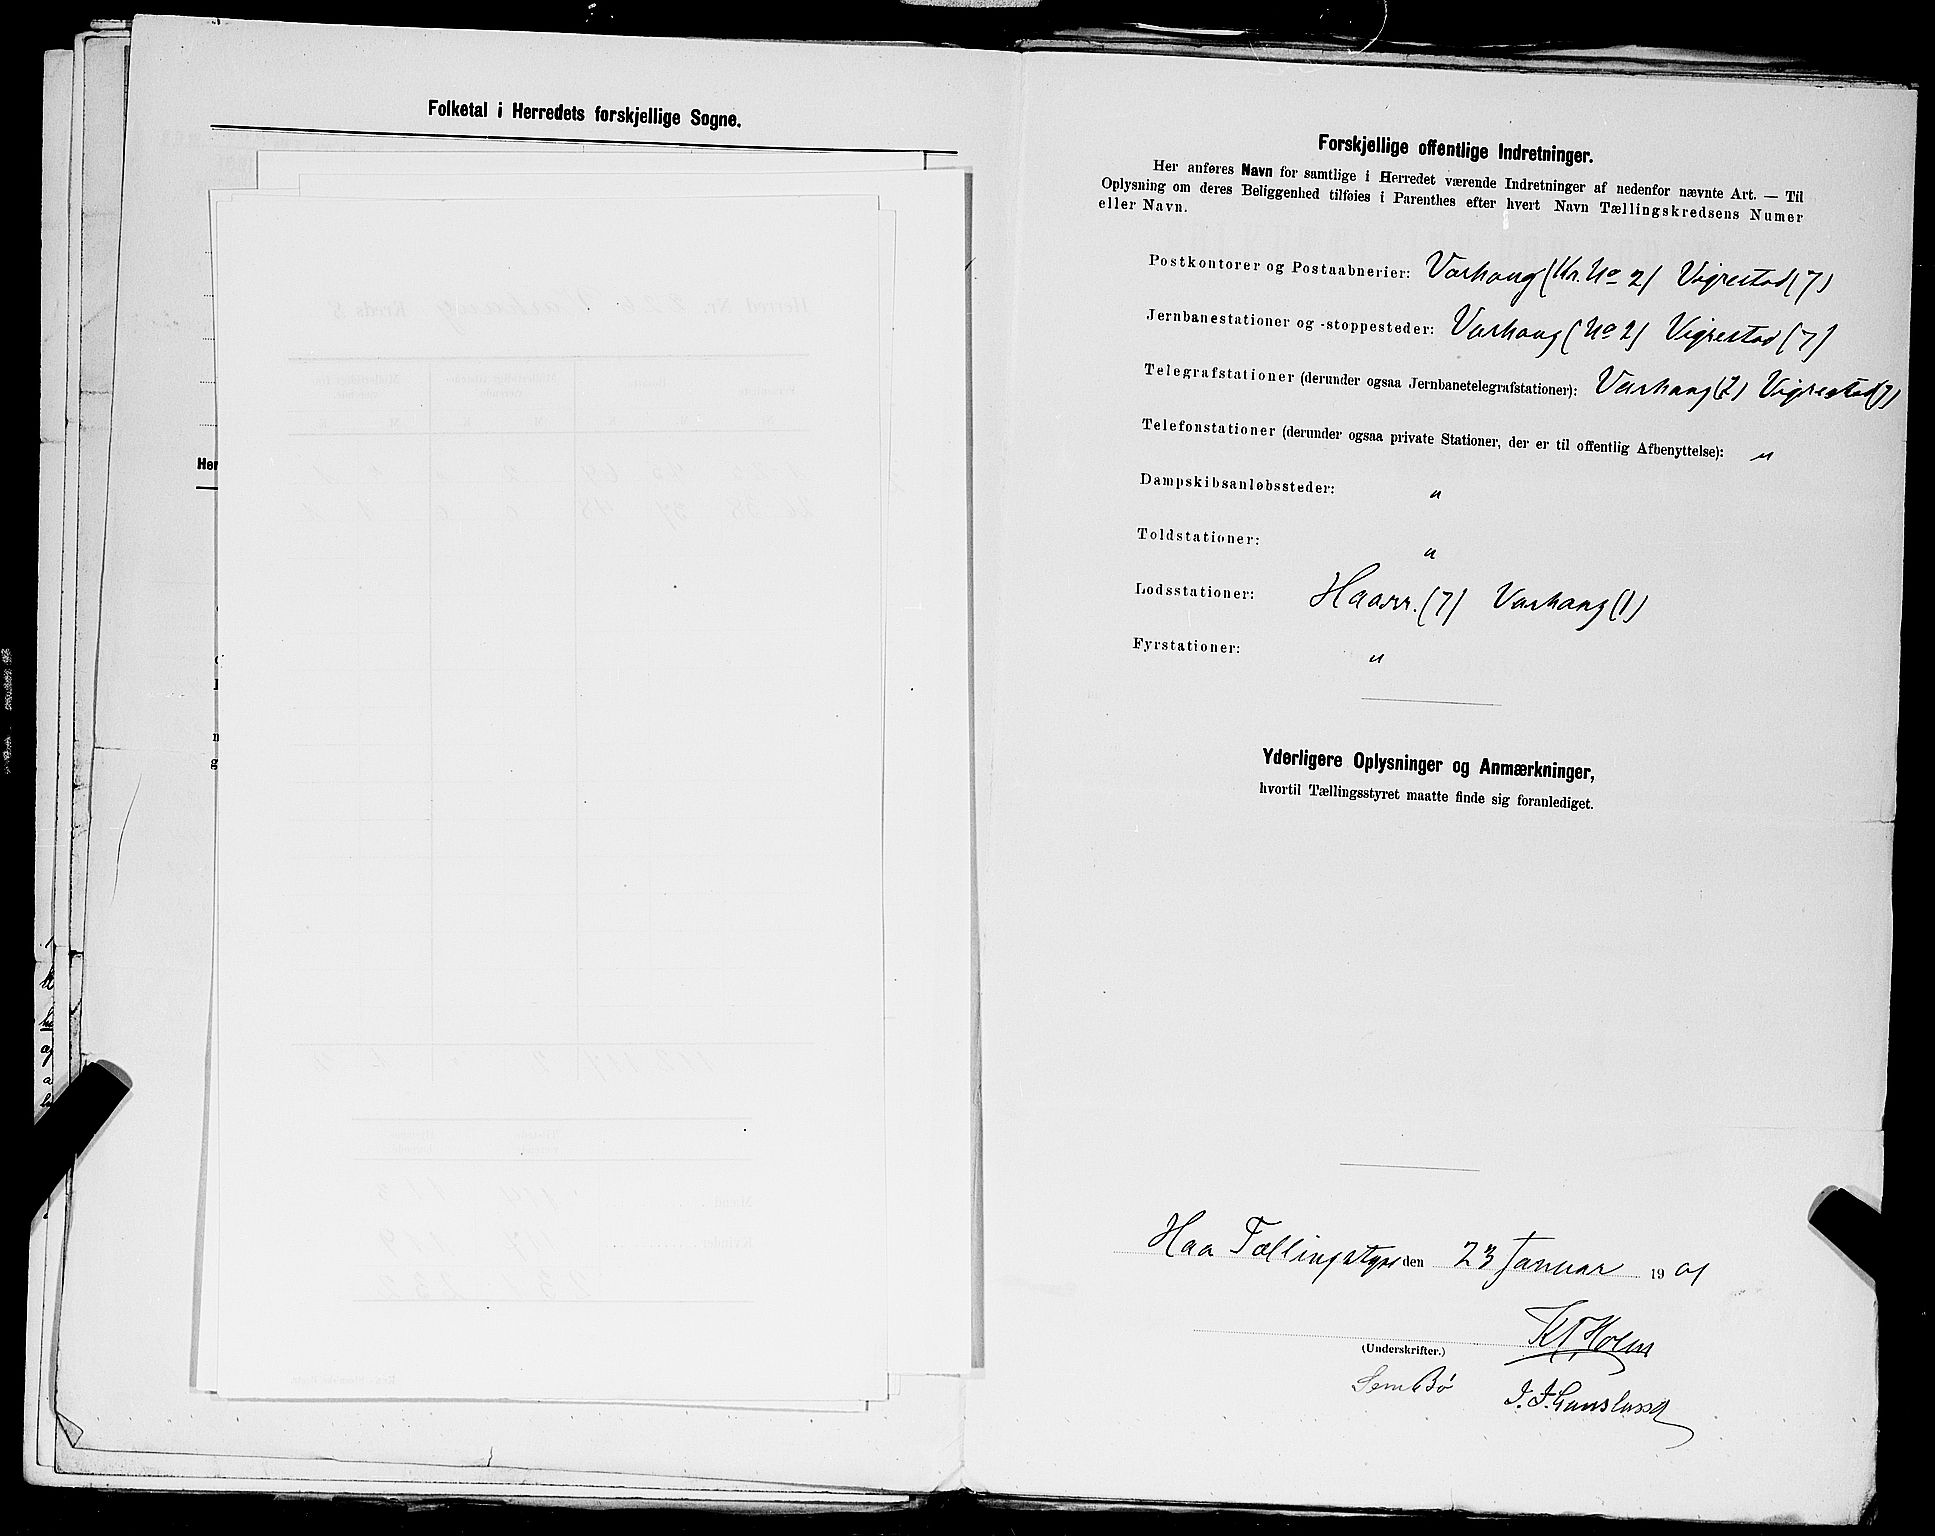 Folketal i Herredets forskjellige Sogne.
Her
Forskjellige offentlige Indretninger.
Her anføres Navn for samtlige i Herredet værende Indretninger af nedenfor nævnte Art. — Til
Oplysning om deres Beliggenhed tilføies i Parenthes efter hvert Navn Tællingskredsens Numer
eller Navn.
Postkontorer og Postaabnerier: Varhaug (Kr. No 2) Vigrestad (7)
Jernbanestationer og -stoppesteder: Varhaug (No 2) Vigrestad (7)
Telegrafstationer (derunder ogsaa Jernbanetelegrafstationer): Varhaug (2) Vigrestad (7)
Telefonstationer (derunder ogsaa private Stationer, der er til offentlig Afbenyttelse): "
Dampskibsanløbssteder: "
Toldstationer: "
Lodsstationer: Haarr. (7) Varhaug (1)
Fyrstationer: "
Yderligere Oplysninger og Anmærkninger,
hvortil Tællingsstyret maatte finde sig foranlediget.
Haa Tællingstyre den 23 Januar 1901
Holm
(Underskrifter.)